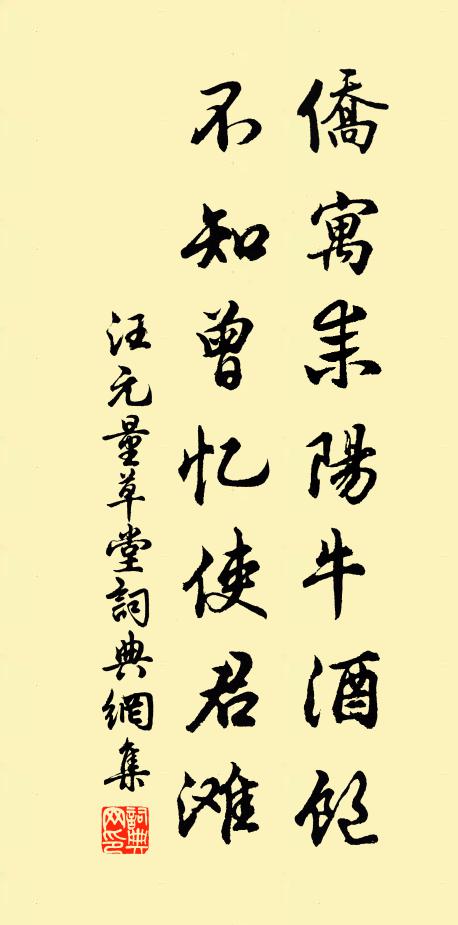 僑寓耒陽牛酒飽
不知曾忆使君滩
汪元量草堂詞典網集
詞典网印